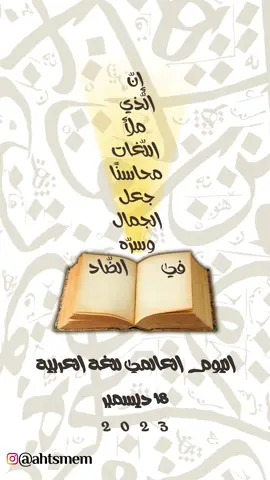 إنَّ
الَّذي
ملأَ
اللغات
محاسنًا
جعل
الجمال
وسرّه
في الضَّاد
اليوم العالمي للغة العربية
18 ديسمبر
2023
@ahtsmem